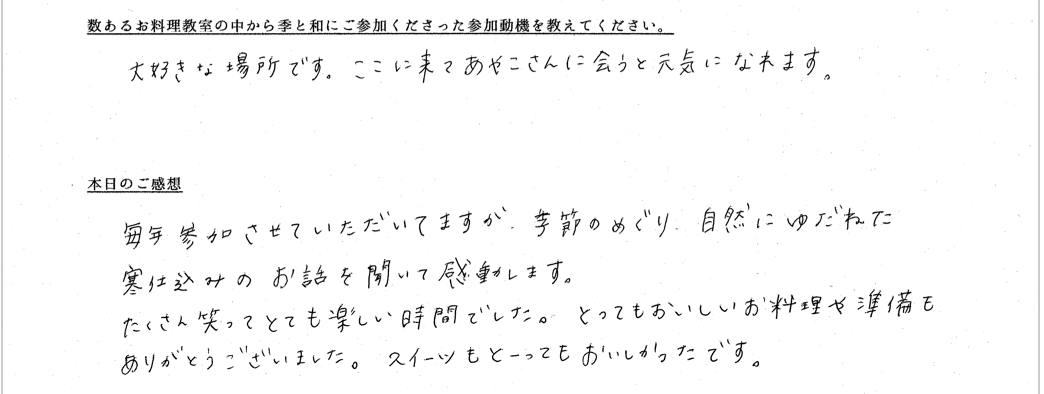 数あるお料理教室の中から季と和にご参加くださった参加動機を教えてください。
大好きな場所です。ここに来てあやこさんに会うと元気になれます。
本日のご感想
毎年参加させていただいてますが、季節のめぐり、自然にゆだねた
寒仕込みのお話を聞いて感動します。
たくさん笑ってとても楽しい時間でした。とってもおいしいお料理や準備も
ありがとうございました。スイーツもとーってもおいしかったです。